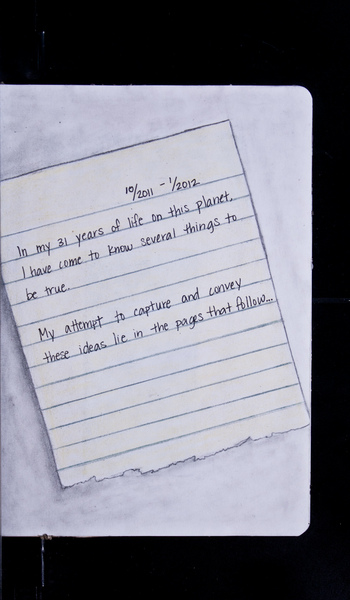 10/2011 - 1/2012
In my 31 years of life on this planet,
I have come to know several things to
be true.
My attempt to capture and convey
these ideas lie in the pages that follow...